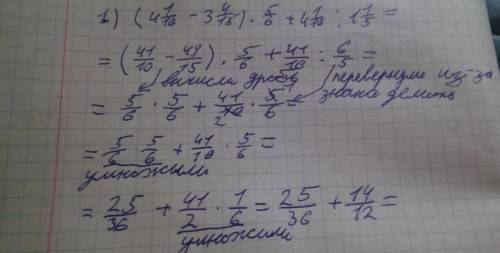 1) (4 1/10 - 3 4/15) · 5/6 + 4 1/10 : 1 1/5 =
= (41/10 - 49/15) · 5/6 + 41/10 : 6/5 =
вычисл дробь перевернули из-за
= 5/6 · 5/6 + 41/10 · 5/6 = знака делить
2
= 5/6 · 5/6 + 41/10 · 5/6 =
умножили
= 25/36 + 41/2 · 1/6 = 25/36 + 14/12 =
умножили